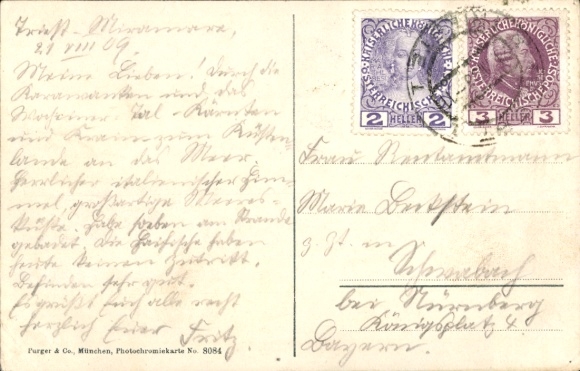 Triest - Miramare,
21 VIII 09.
Meine Lieben! Durch die
Karawanken und das
Wocheiner-Tal - Kärnten
und Krain zum Küsten-
lande an das Meer.
Herrlicher italienischer Him-
mel, großartige Meeres-
küste. Habe soeben am Strande
gebadet. Die Haifische haben
heute keinen Zutritt.
Befinden sehr gut.
Es grüßt Euch alle recht
herzlich Euer Fritz.
Purger & Co., München, Photochromiekarte No. 8084
KAISERLICHE KÖNIGLICHE
ÖSTERREICHISCHE POST
2 HELLER 2
KAISERLICHE KÖNIGLICHE
ÖSTERREICHISCHE POST
3 HELLER 3
Frau Rentamtmann
Marie
z. Zt. in
Schwabach
bei Nürnberg
Königsplatz 4
Bayern.